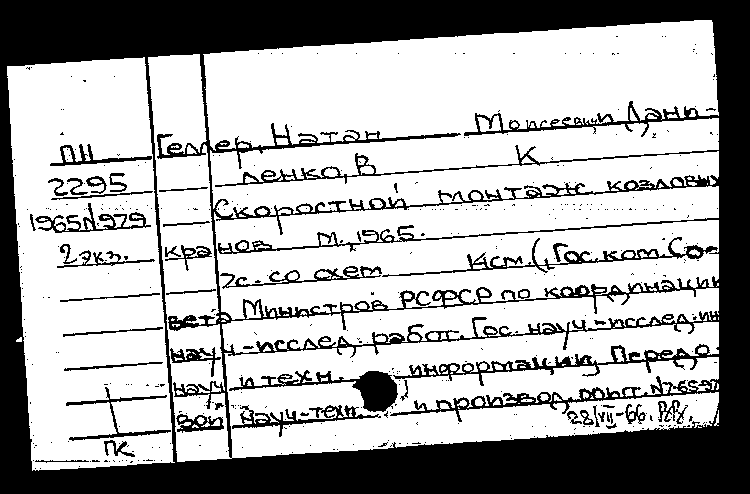 ПН Геллер, Натан Моисеевич, Дани-
2295 ленко, В К
1965№979 Скоростной монтаж козловых
2 экз. кранов М., 1965.
7с. со схем 14см. (Гос. ком. Со-
вета Министров РСФСР по координации
науч-исслед. работ. Гос. науч.-исслед. ин
науч и техн. информации. Передо-
вой науч-техн. и производ. опыт. №7-65-97
28/VII-66.
ПК